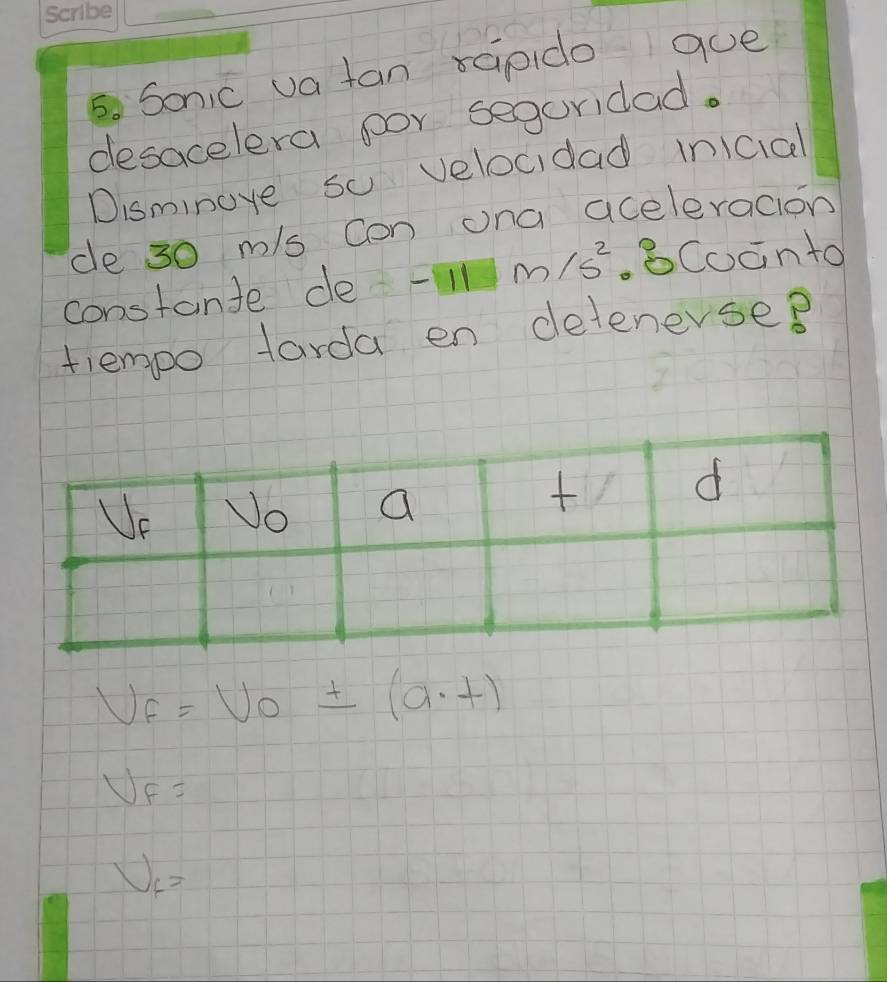 Scribe
5. Sonic va tan rápido que
desacelera por seguridad.
Disminuye su velocidad inicial
de 30 m/s con una aceleración
constante de -11 m/s². ¿Cuánto
tiempo tarda en detenerse?
VF Vo a t d
VF = Vo ± (a·t)
VF =
VF =